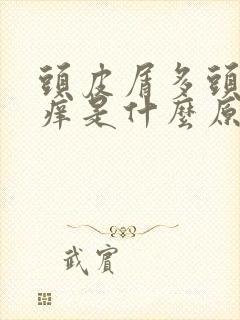 頭皮屑多頭
癢是什麼原
武賓